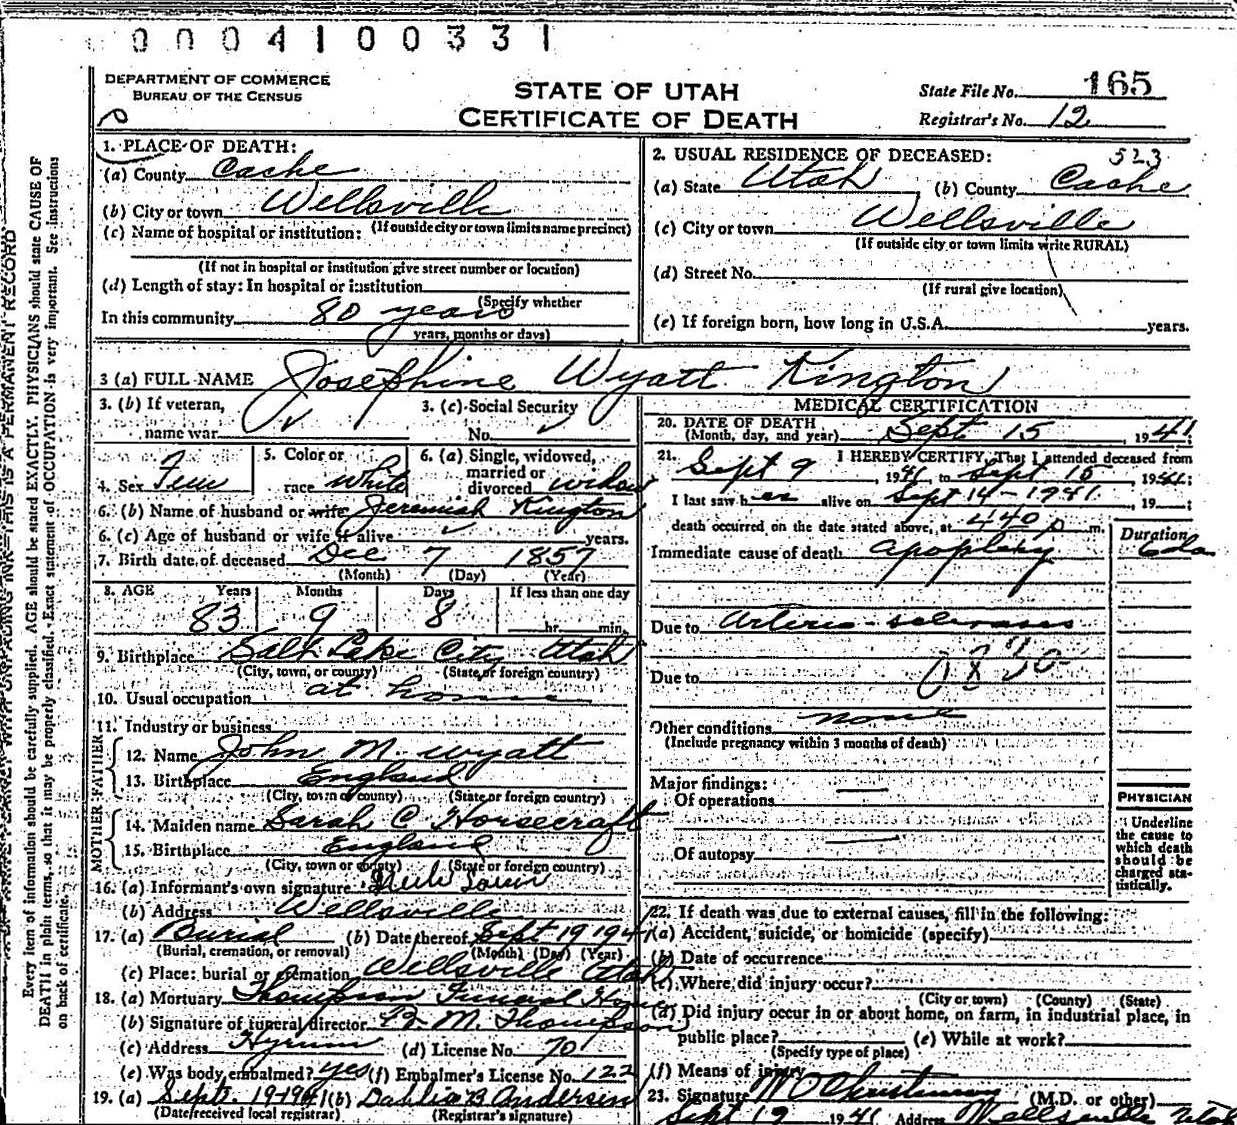 0004100331
DEPARTMENT OF COMMERCE
BUREAU OF THE CENSUS
STATE OF UTAH
CERTIFICATE OF DEATH
State File No. 165
Registrar's No. 12
1. PLACE OF DEATH:
(a) County Cache
(b) City or town Wellsville
(If outside city or town limits name precinct)
(c) Name of hospital or institution:
(If not in hospital or institution give street number or location)
(d) Length of stay: In hospital or institution
(Specify whether
In this community 80 years
years, months or days)
2. USUAL RESIDENCE OF DECEASED: 523
(a) State Utah (b) County Cache
(c) City or town Wellsville
(If outside city or town limits write RURAL)
(d) Street No.
(If rural give location)
(e) If foreign born, how long in U.S.A. years.
3 (a) FULL NAME Josephine Wyatt Kington
3. (b) If veteran,
name war
3. (c) Social Security
No.
4. Sex Fem
5. Color or
race white
6. (a) Single, widowed,
married or
divorced widow
6. (b) Name of husband or wife Jeremiah Kington
6. (c) Age of husband or wife if alive years.
7. Birth date of deceased Dec 7 1857
(Month) (Day) (Year)
8. AGE Years Months Days If less than one day
83 9 8 hr. min.
9. Birthplace Salt Lake City Utah
(City, town, or county) (State or foreign country)
10. Usual occupation at home
11. Industry or business
FATHER
12. Name John M. Wyatt
13. Birthplace England
(City, town or county) (State or foreign country)
MOTHER
14. Maiden name Sarah C Horsecraft
15. Birthplace England
(City, town or county) (State or foreign country)
16. (a) Informant's own signature
(b) Address Wellsville
17. (a) Burial (b) Date thereof Sept 19 1941
(Burial, cremation, or removal) (Month) (Day) (Year)
(c) Place: burial or cremation Wellsville Utah
18. (a) Mortuary Thompson Funeral Home
(b) Signature of funeral director M. Thompson
(c) Address Hyrum (d) License No. 70
(e) Was body embalmed? yes (f) Embalmer's License No. 122
19. (a) Sept. 19-1941 (b) Dahlia B Andersen
(Date received local registrar) (Registrar's signature)
MEDICAL CERTIFICATION
20. DATE OF DEATH
(Month, day, and year) Sept 15, 1941
21. I HEREBY CERTIFY, That I attended deceased from
Sept 9, 1941 to Sept 15, 1941
I last saw her alive on Sept 14-1941 19
death occurred on the date stated above, at 4 40 p m.
Duration
Immediate cause of death apoplexy 6 da
Due to Arterio-sclerosis
Due to
Other conditions none
(Include pregnancy within 3 months of death)
Major findings:
Of operations
Of autopsy
PHYSICIAN
Underline
the cause to
which death
should be
charged sta-
tistically.
22. If death was due to external causes, fill in the following:
(a) Accident, suicide, or homicide (specify)
(b) Date of occurrence
(c) Where did injury occur?
(City or town) (County) (State)
(d) Did injury occur in or about home, on farm, in industrial place, in
public place? (e) While at work?
(Specify type of place)
(f) Means of injury
23. Signature (M.D. or other)
Sept 19 1941 Address Wellsville Utah
Every item of information should be carefully supplied. AGE should be stated EXACTLY. PHYSICIANS should state CAUSE OF
DEATH in plain terms, so that it may be properly classified. Exact statement of OCCUPATION is very important. See instructions
on back of certificate.
THIS IS A PERMANENT RECORD